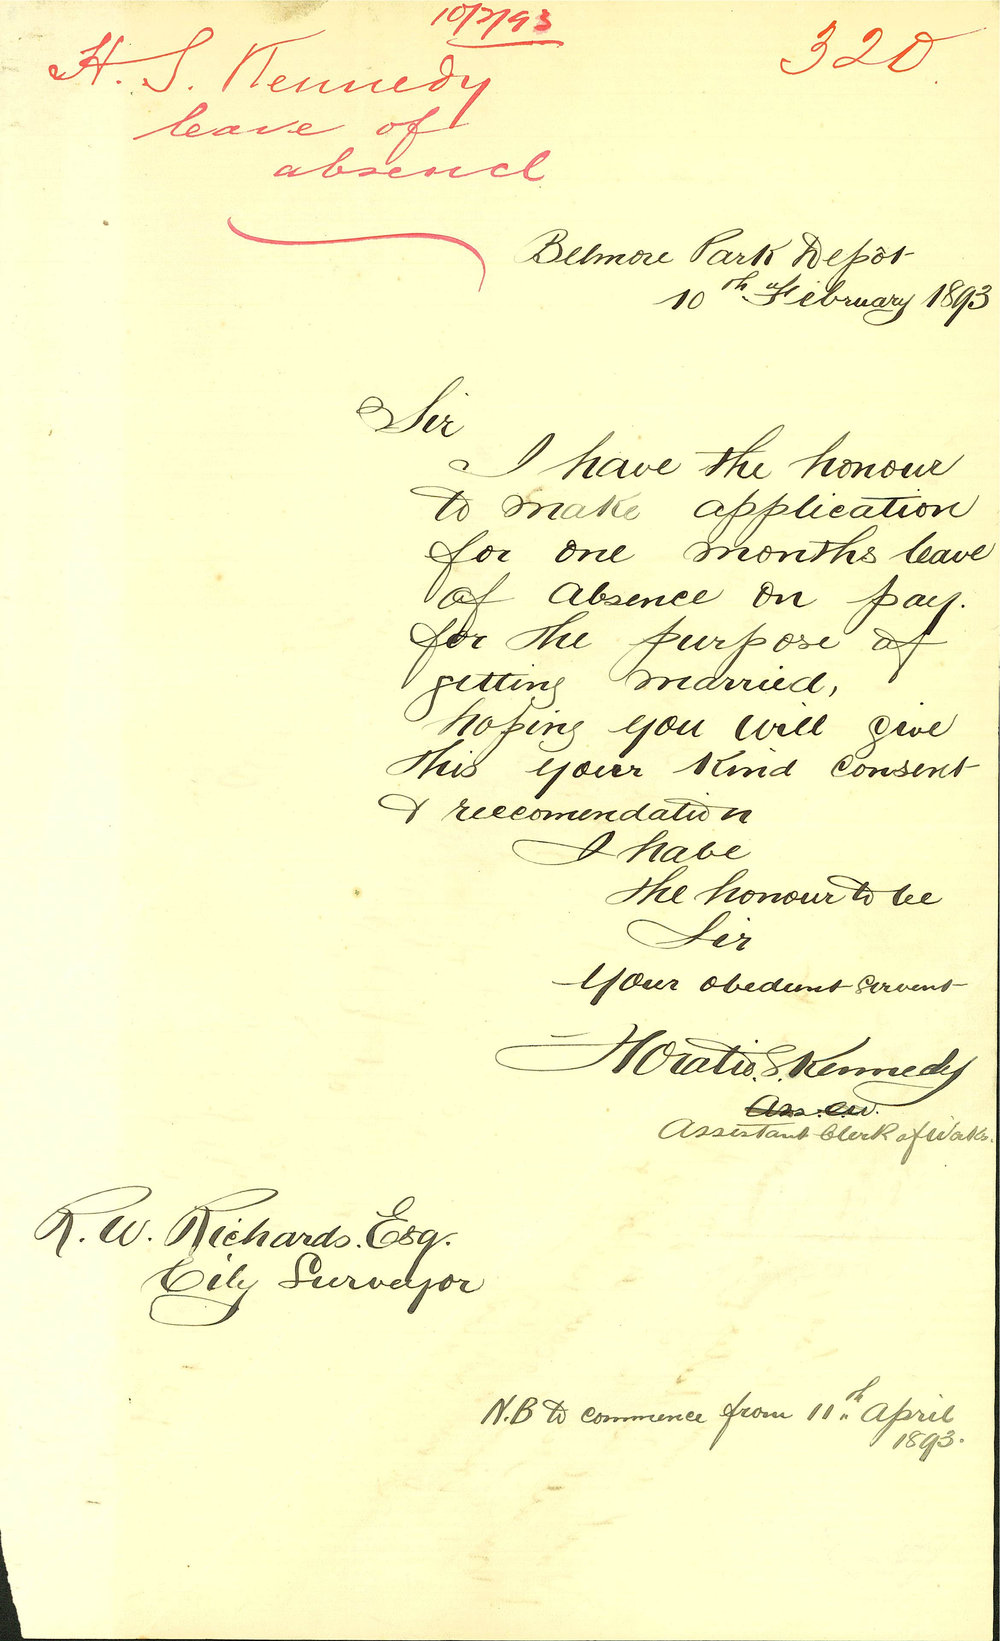 10/2/93
320
H. S. Kennedy
leave of
absence
Belmore Park Depôt
10th February 1893
Sir
I have the honour
to make application
for one months leave
of absence on pay.
for the purpose of
getting married,
hoping you will give
this your kind consent
& reccomendation
I have
the honour to be
Sir
Your obedient servent
Horatio. S. Kennedy
Ass. C.W.
Assistant Clerk of Works.
R. W. Richards. Esq.
City Surveyor
N.B to commence from 11th April
1893.